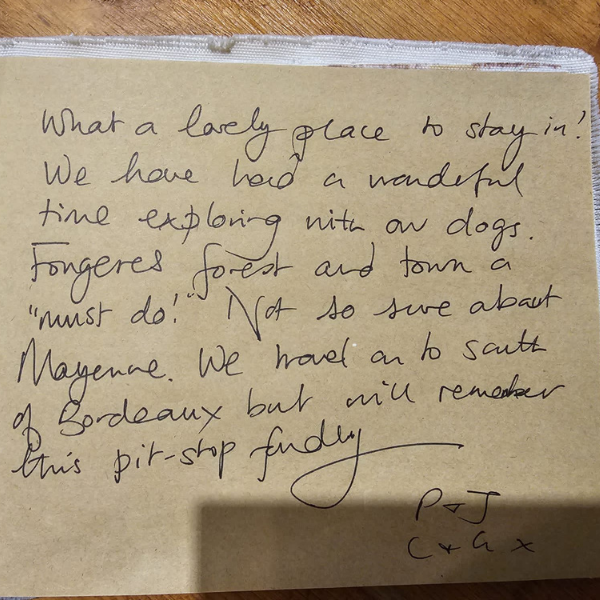 What a lovely place to stay in!
We have had a wonderful
time exploring with our dogs.
Fougeres forest and town a
"must do!" Not so sure about
Mayenne. We travel on to south
of Bordeaux but will remember
this pit-stop fondly
P & J
C & G x